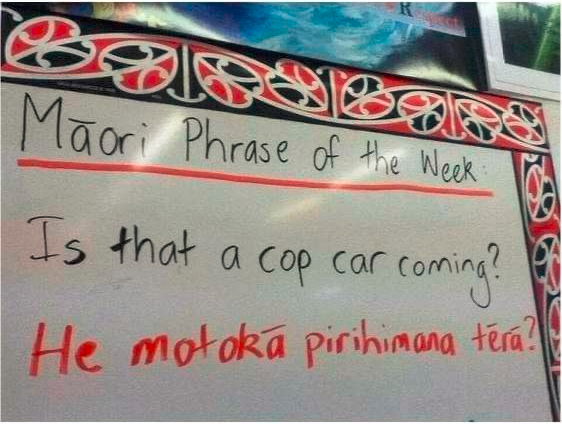 Respect
Māori Phrase of the Week:
Is that a cop car coming?
He motokā pirihimana tērā?